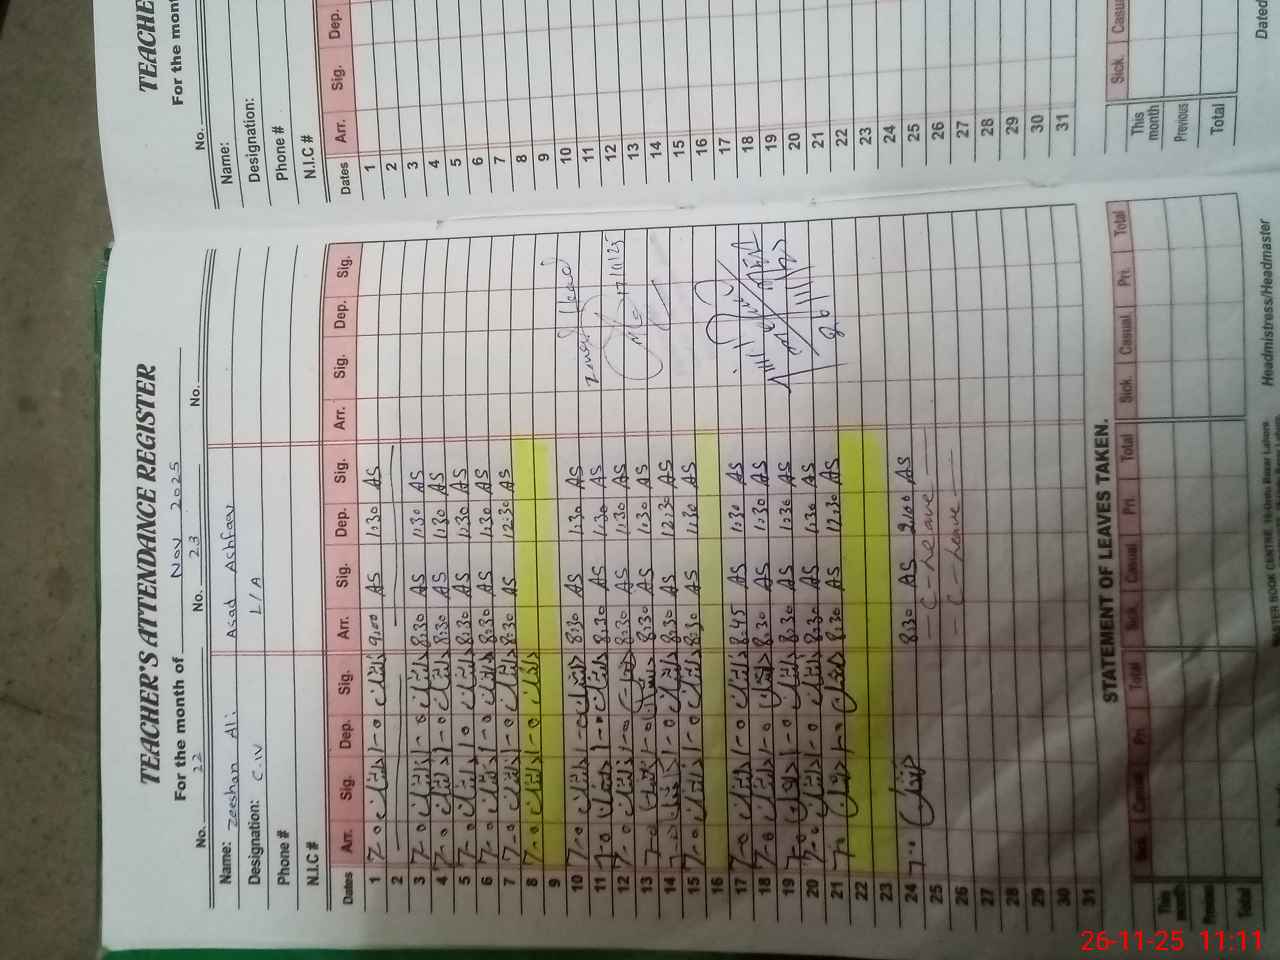 TEACHER'S ATTENDANCE REGISTER
For the month of Nov 2025
No. 22 No. 23 No.
Name: Zeeshan Ali Asad Ashfaq
Designation: C.IV L/A
Phone #
N.I.C #
Dates Arr. Sig. Dep. Sig. Arr. Sig. Dep. Sig. Arr. Sig. Dep. Sig.
1 7-0 ذیشان 1-0 ذیشان 9.00 AS 1:30 AS
2
3 7-0 ذیشان 1-0 ذیشان 8:30 AS 1:30 AS
4 7-0 ذیشان 1-0 ذیشان 8:30 AS 1:30 AS
5 7-0 ذیشان 1-0 ذیشان 8:30 AS 1:30 AS
6 7-0 ذیشان 1-0 ذیشان 8:30 AS 1:30 AS
7 7-0 ذیشان 1-0 ذیشان 8:30 AS 12:30 AS
8 7-0 ذیشان 1-0 ذیشان
9
10 7-0 ذیشان 1-0 ذیشان 8:30 AS 1:30 AS
11 7-0 ذیشان 1-0 ذیشان 8:30 AS 1:30 AS
12 7-0 ذیشان 1-0 ذیشان 8:30 AS 1:30 AS
13 7-0 ذیشان 1-0 ذیشان 8:30 AS 1:30 AS
14 7-0 ذیشان 1-0 ذیشان 8:30 AS 12:30 AS
15 7-0 ذیشان 1-0 ذیشان 8:30 AS 1:30 AS
16
17 7-0 ذیشان 1-0 ذیشان 8:45 AS 1:30 AS
18 7-0 ذیشان 1-0 ذیشان 8:30 AS 1:30 AS
19 7-0 ذیشان 1-0 ذیشان 8:30 AS 1:30 AS
20 7-0 ذیشان 1-0 ذیشان 8:30 AS 1:30 AS
21 7-0 ذیشان 1-0 ذیشان 8:30 AS 12:30 AS
22
23
24 7-0 ذیشان 8:30 AS 2:00 AS
25 C-Leave
26 C-Leave
27
28
29
30
31
STATEMENT OF LEAVES TAKEN.
Sick. Casual Pri Total Sick. Casual Pri Total Sick. Casual Pri. Total
This month
Previous
Total
Headmistress/Headmaster
TEACHE
For the mon
No.
Name:
Designation:
Phone #
N.I.C #
Dates Arr. Sig. Dep.
1
2
3
4
5
6
7
8
9
10
11
12
13
14
15
16
17
18
19
20
21
22
23
24
25
26
27
28
29
30
31
Sick. Casu
This month
Previous
Total
Dated
26-11-25 11:11